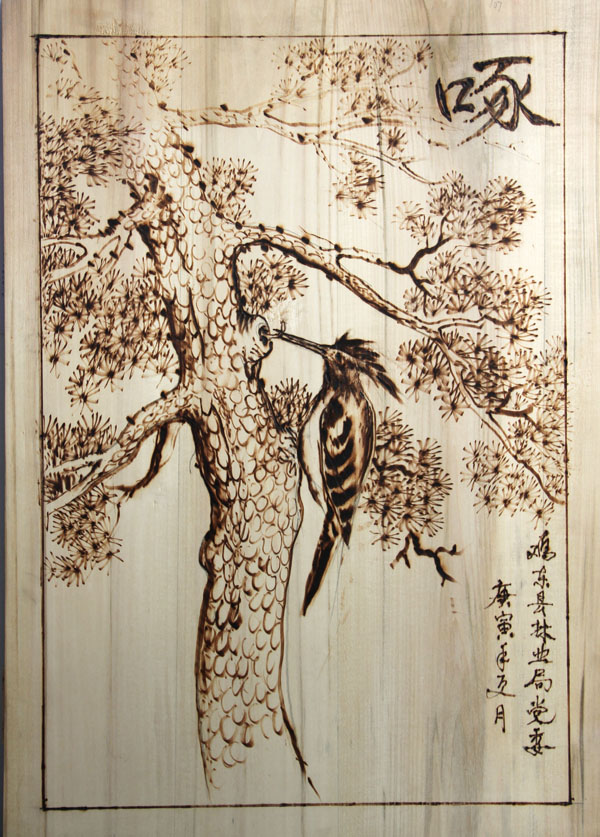 啄
鸡东县林业局党委
庚寅年夏月